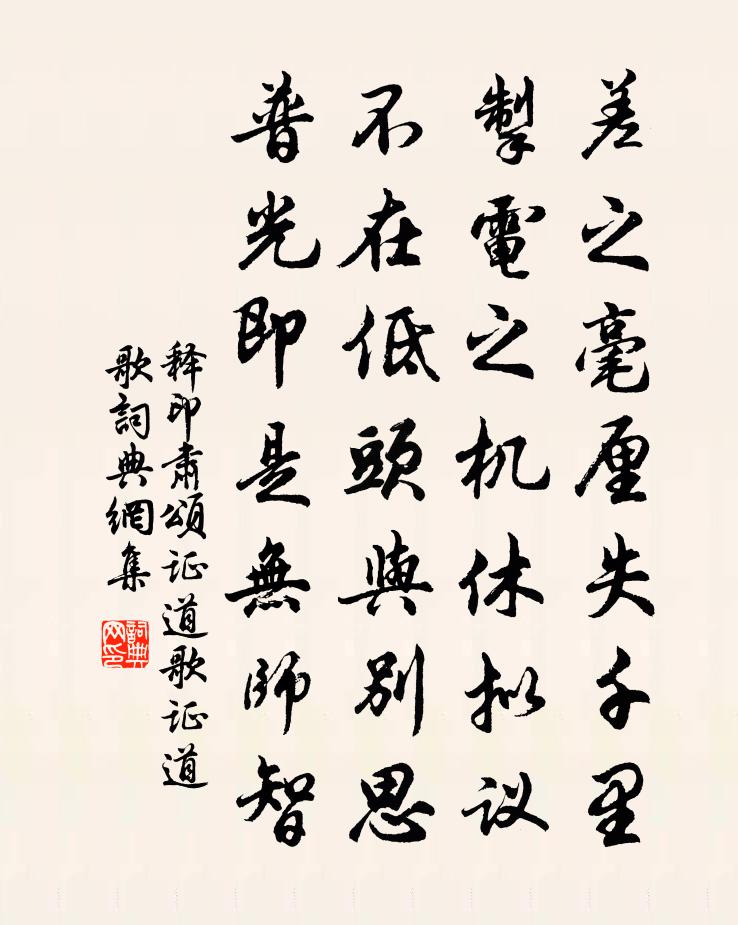 差之毫厘失千里
掣電之机休拟议
不在低頭與別思
普光即是無師智
释印肃頌证道歌证道
歌詞典網集
詞典网印